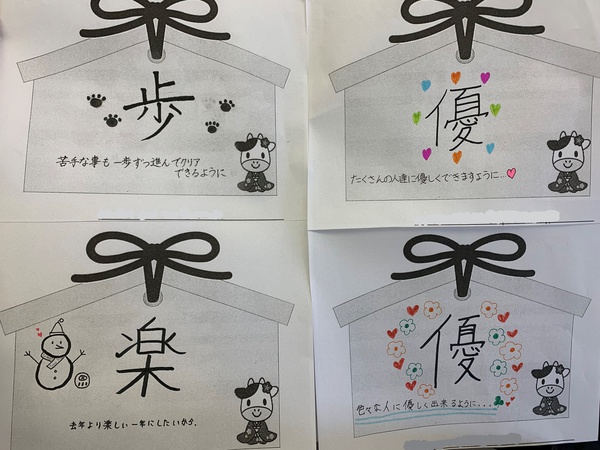 歩
苦手な事も一歩ずつ進んでクリア
できるように
優
たくさんの人達に優しくできますように…
楽
去年より楽しい一年にしたいから。
優
色々な人に優しく出来るように...